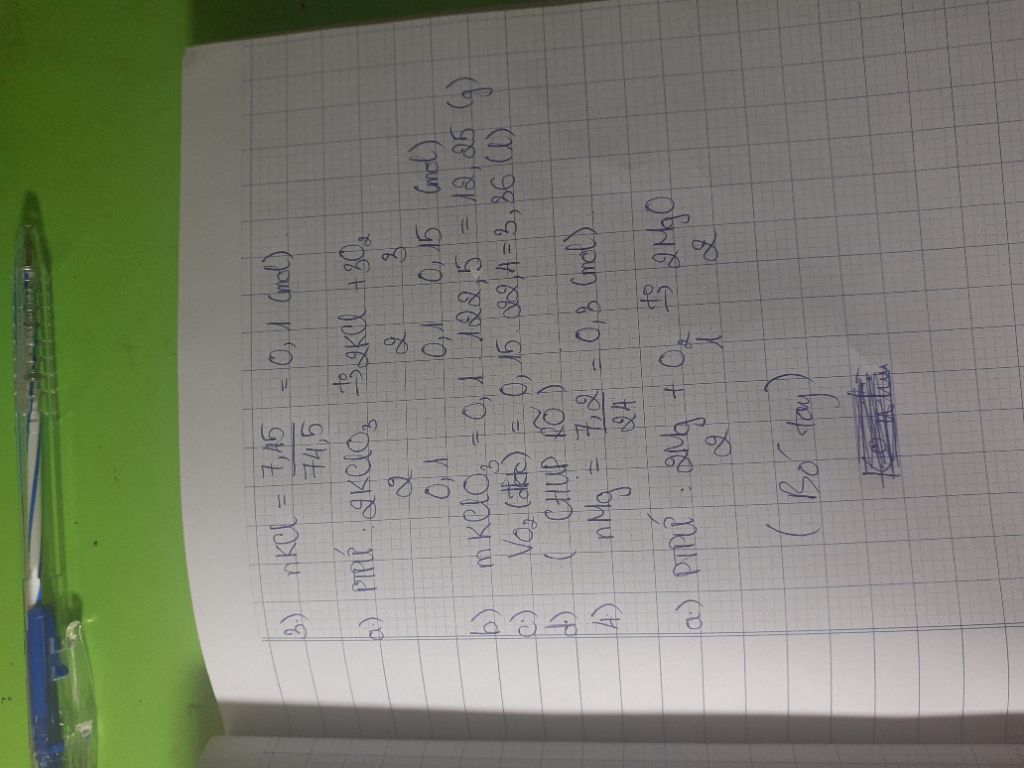 3) nKCl = 7,45 / 74,5 = 0,1 (mol)
a) PTPƯ : 2KClO3 t° → 2KCl + 3O2
2 2 3
0,1 0,1 0,15 (mol)
b) mKClO3 = 0,1 . 122,5 = 12,25 (g)
c) VO2 (đktc) = 0,15 . 22,4 = 3,26 (l)
d) ( CHỊU RÕ )
4) nMg = 7,2 / 24 = 0,3 (mol)
a) PTPƯ : 2Mg + O2 t° → 2MgO
2 1 2
( Bó tay )